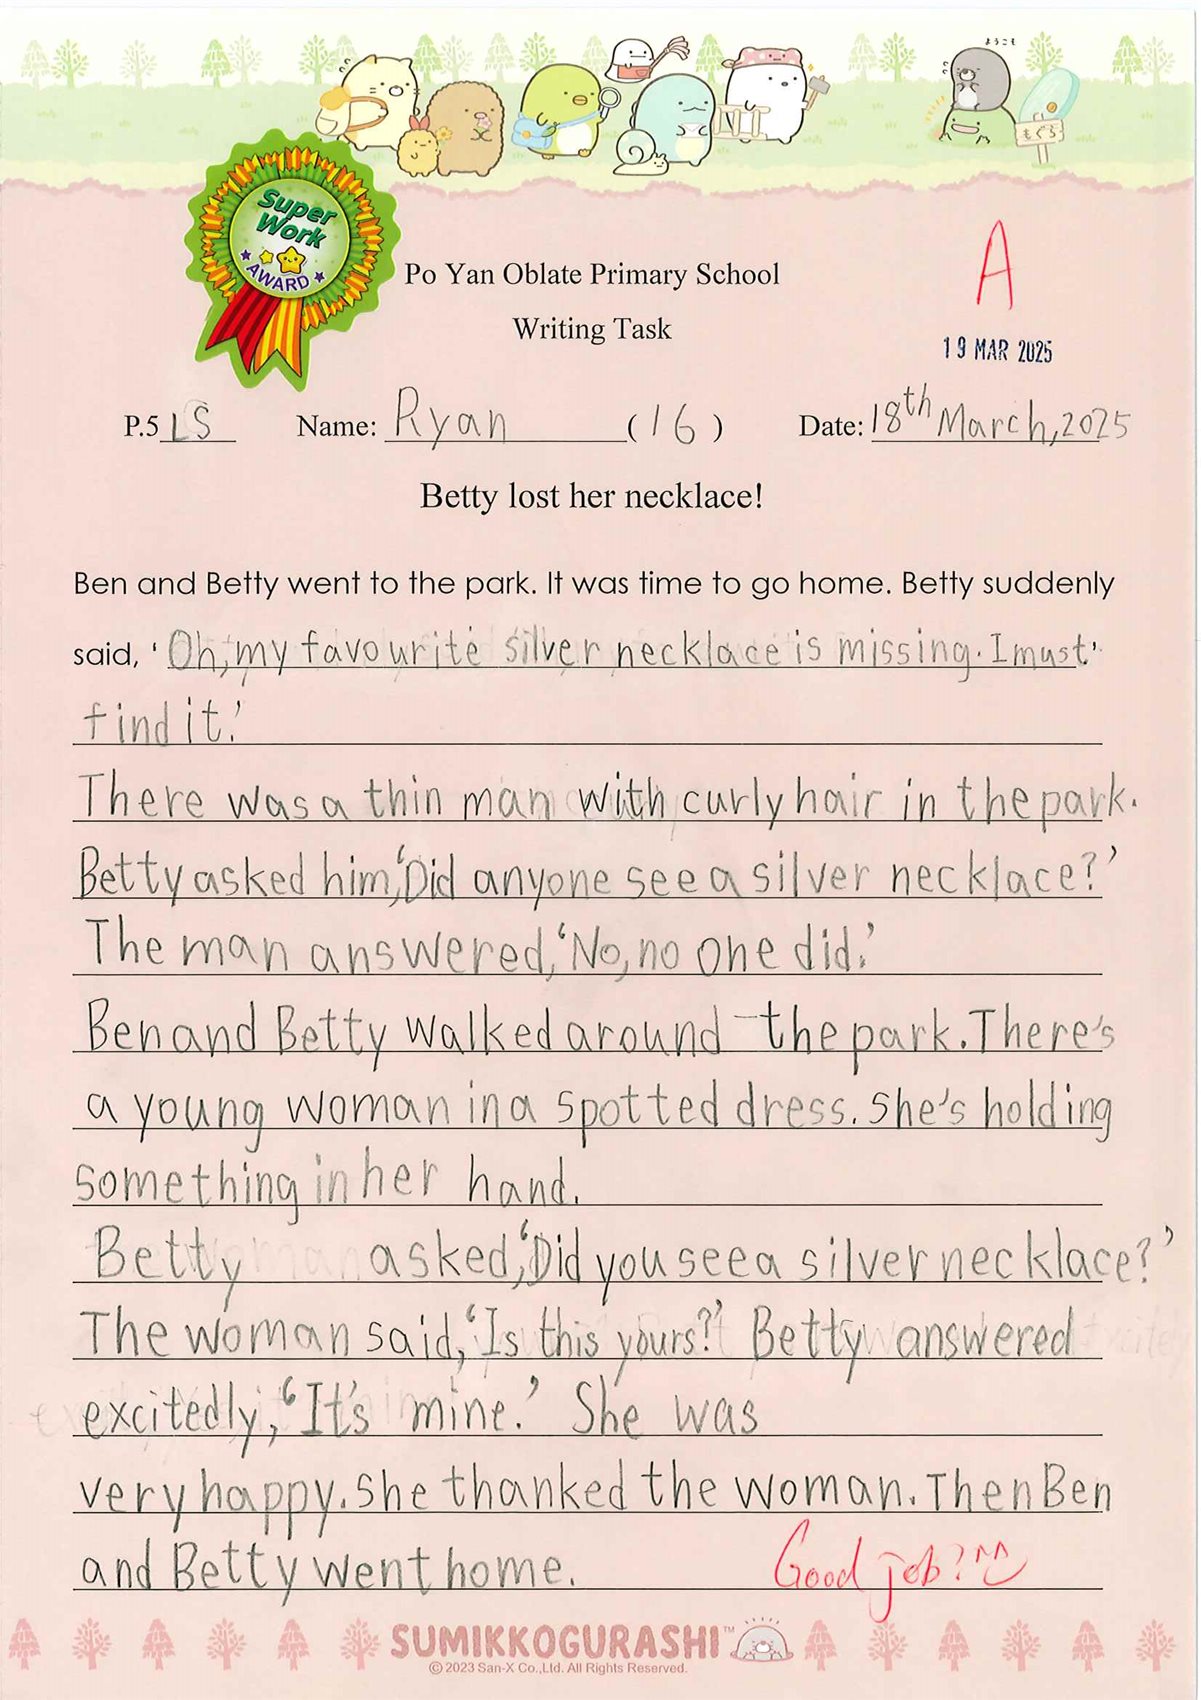 ようこそ
もぐら
Super
Work
AWARD
A
Po Yan Oblate Primary School
Writing Task
19 MAR 2025
P.5 LS Name: Ryan (16) Date: 18th March, 2025
Betty lost her necklace!
Ben and Betty went to the park. It was time to go home. Betty suddenly
said, ‘Oh, my favourite silver necklace is missing. I must’
find it.’
There was a thin man with curly hair in the park.
Betty asked him, ‘Did anyone see a silver necklace?’
The man answered, ‘No, no one did.’
Ben and Betty walked around the park. There's
a young woman in a spotted dress. She's holding
something in her hand.
Betty asked, ‘Did you see a silver necklace?’
The woman said, ‘Is this yours?’ Betty answered
excitedly, ‘It's mine.’ She was
very happy. She thanked the woman. Then Ben
and Betty went home.
Good job!
SUMIKKOGURASHI™
© 2023 San-X Co., Ltd. All Rights Reserved.